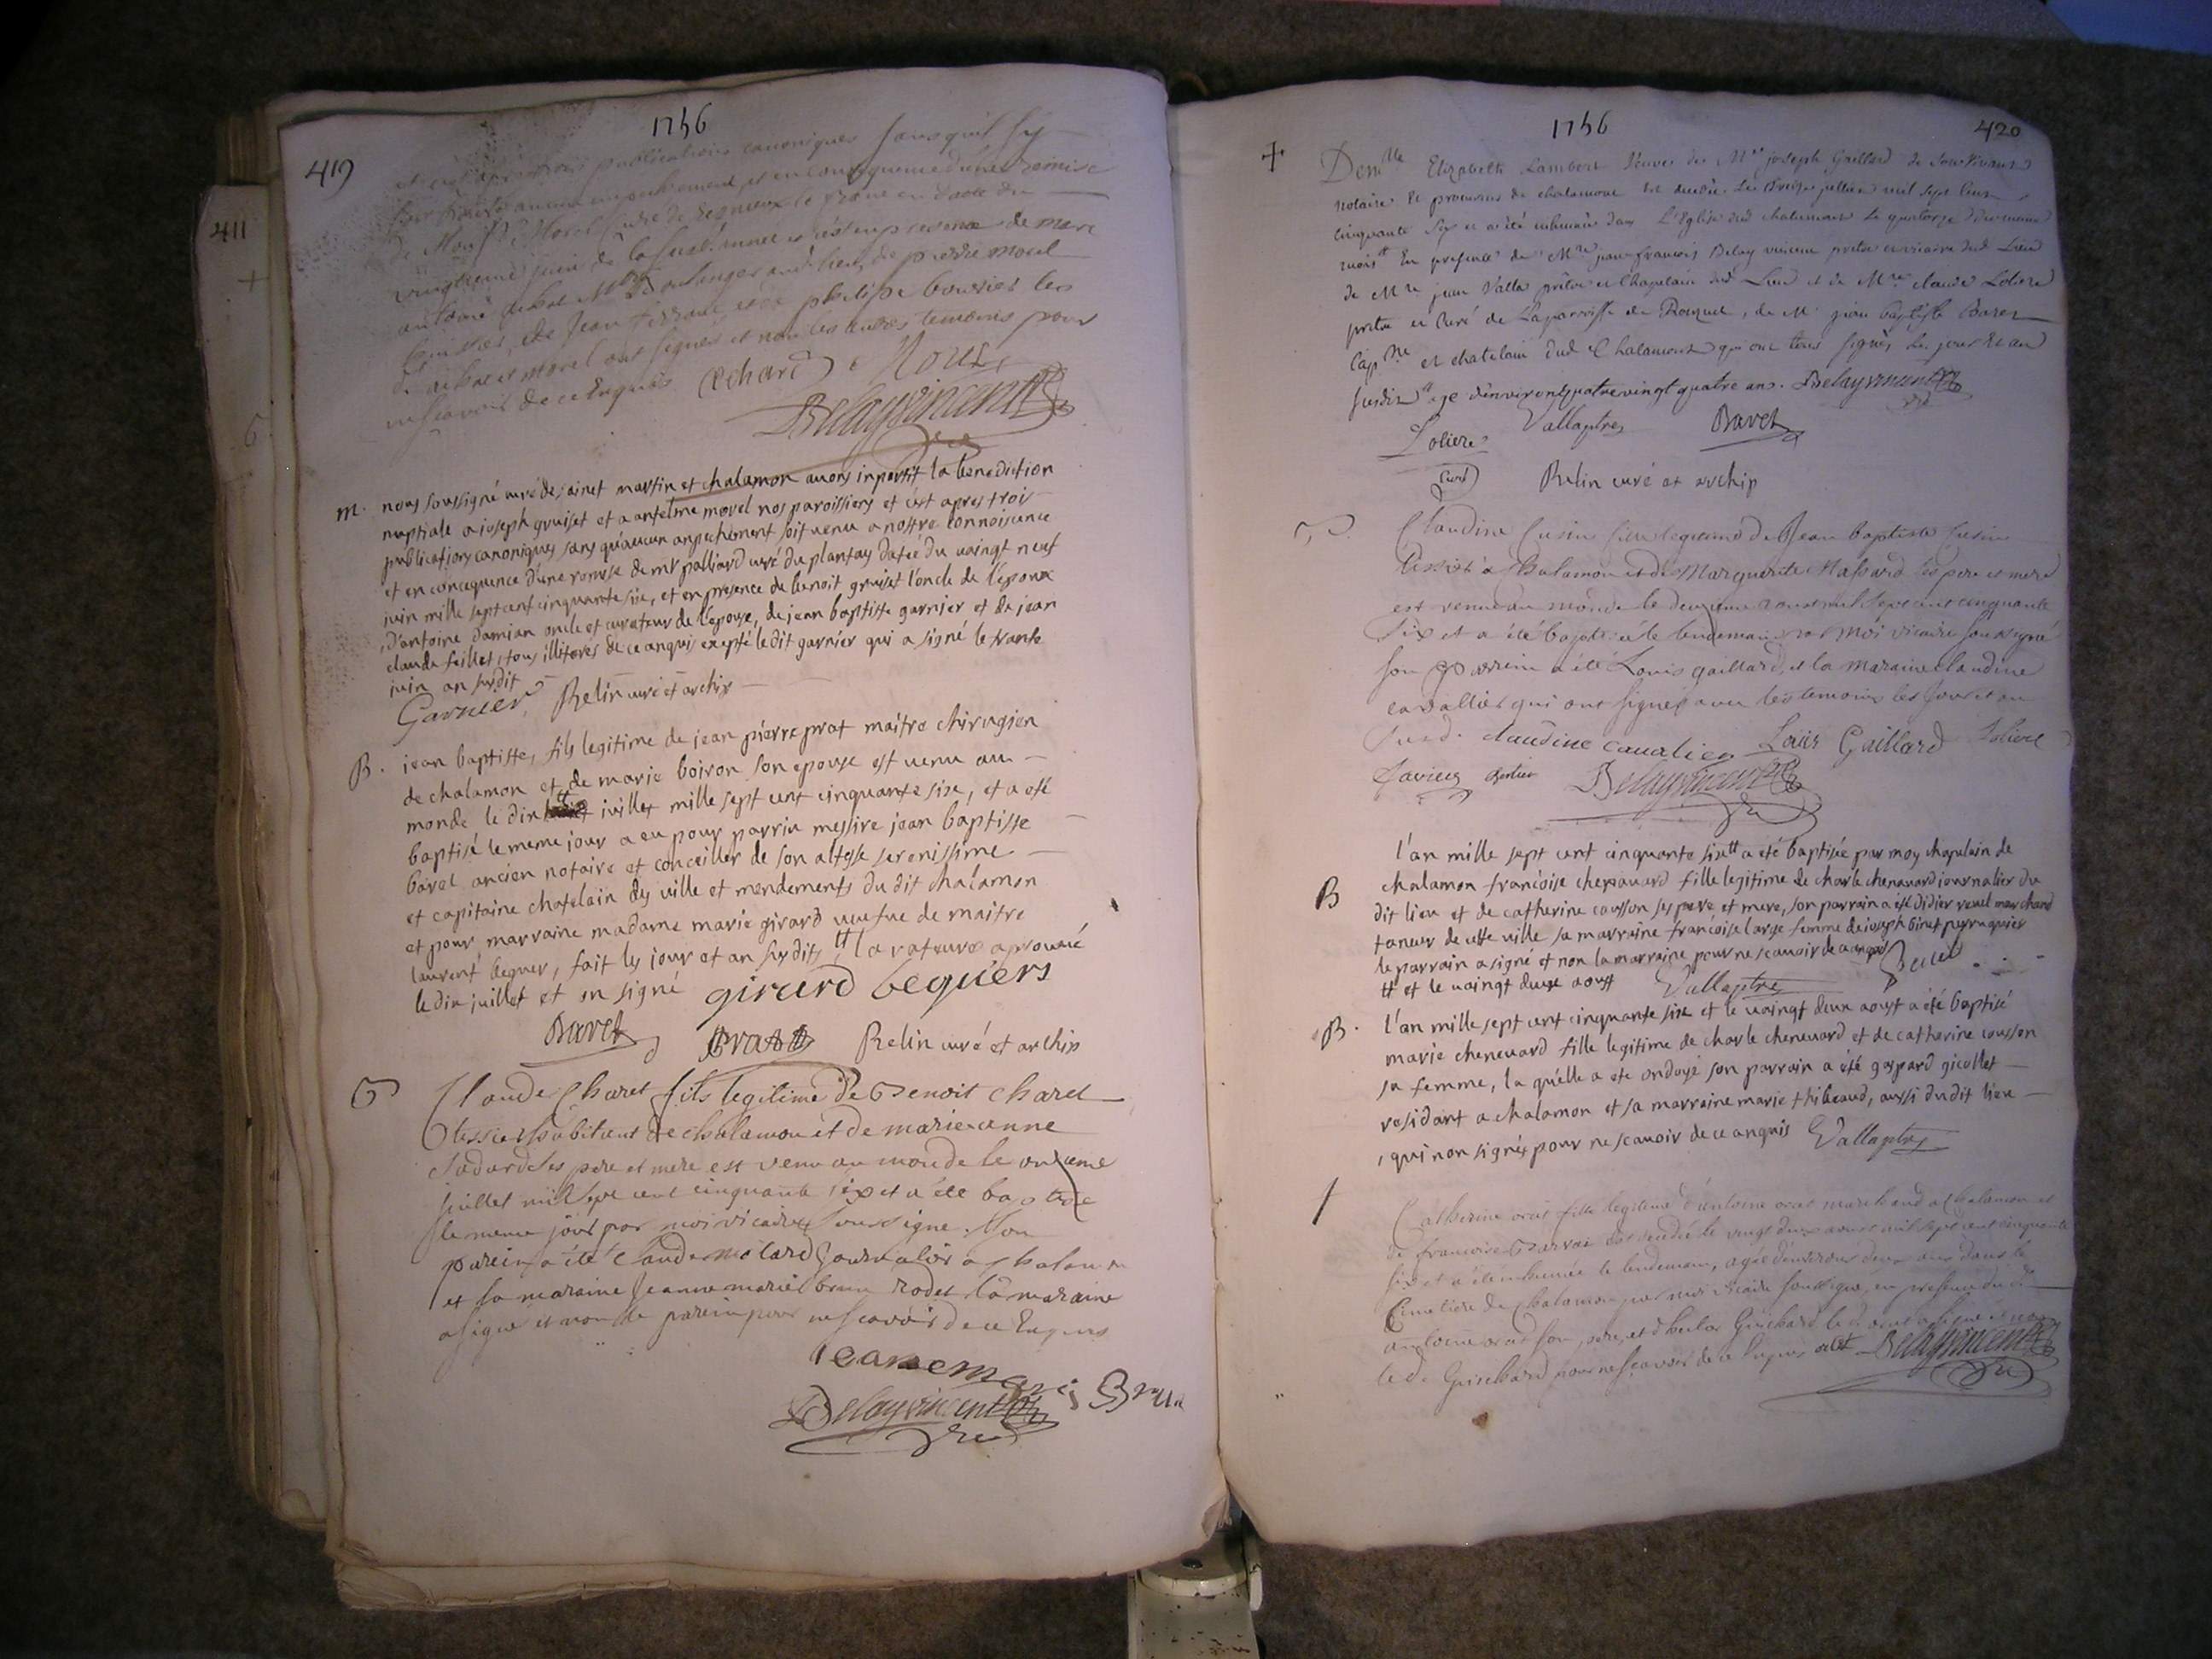 1756
419
et ce après trois publications canoniques sans qu'il s'y
soit trouvé aucun empechement et en consequence d'une remise
de Mons.r Morel Curé de le en datte du
vingtieme juin de la susd. année et c'est en presence de marc
antoine M.re Boulanger aud. lieu, de pierre morel
de jean et de philipe bouvier les
d. et morel ont signés et non les autres temoins pour
ne scavoir de ce Enquis
Delayvincent
vic
m. nous soussigné curé de sainct martin et chalamon avons inpartit la benediction
nuptiale a joseph gruiset et a antelme morel nos paroissiens et cest apres trois
publications canoniques sans qu'aucun anpechement soit venu a nostre connoisence
et en concequence d'une remise de mr palliard curé du plantay datée du vaingt neuf
juin mille sept cent cinquante six, et en presence de benoit gruiset l'oncle de l'epoux
, d'antoine damian oncle et curateur de l'epouse, de jean baptiste garnier et de jean
claude feillet, tous illiterés de ce anquis exepté le dit garnier qui a signé le trante
juin an susdit
Garnier Relin curé et archip
B. jean baptiste, fils legitime de jean pierre prat maitre chirugien
de chalamon et de marie boiron son epouse est venu au
monde le dix juillet mille sept cent cinquante six, et a eté
baptisé le meme jour a eu pour parrin messire jean baptiste
bavet ancien notaire et conceiller de son altesse serenissime
et capitaine chatelain des ville et mendements du dit chalamon
et pour marraine madame marie girard veufve de maitre
laurent beguer, fait les jour et an susdits, tt la rateure aprouvée
le dix juillet et on signé girard beguers
Bavet Prat Relin curé et archip
B Claude Charet fils legitime de Benoit Charet
tissier habitant de chalamon et de marie anne
ses pere et mere est venu au monde le onzieme
juillet mil sept cent cinquante six et a été baptisé
le meme jour par moi vicaire soussigné. Son
parein a été Claude molard journalier a chalamon
et sa maraine jeanne marie brun rodet la maraine
a signé et non le parein pour ne scavoir de ce Enquis
jeanemarie Brun
Delayvincent
vic
1756
420
+ Dem.lle Elizabeth Lambert veuve de M.re joseph Gaillard de son vivant
notaire et procureur de chalamont est decedée le treize juillet mil sept cent
cinquante six et a été inhumée dans L'Eglise dud chalamont le quatorze du meme
mois en presence de M.re jean francois Delay vincent pretre et vicaire dud Lieu
de M.re jean Valla prêtre et Chapelain dud Lieu et de M.re claude Loliere
pretre et Curé de La parroisse de Ronzuel, de M. jean baptiste Bavet
Cap.ne et chatelain dud Chalamont qui ont tous signés les jour et an
susdit age d'environ quatre vingt quatre ans. Delayvincent
vic
Loliere Vallaptre Bavet
curé Relin curé et archip
B. Claudine Cusin fille legitime de Jean baptiste Cusin
tissier à Chalamon et de Marguerite Massard ses pere et mere
est venue au monde le deuzieme aoust mil sept cent cinquante
six et a été baptisée le lendemain par moi vicaire soussigné
son parrein a été Louis gaillard, et la maraine claudine
cavallier qui ont signés avec les temoins les jour et an
susd. claudine cavalier Louis Gaillard Loliere
Javieux Delayvincent
vic
B l'an mille sept cent cinquante six tt a été baptisée par moy chapelain de
chalamon francoise chenavard fille legitime de charle chenavard journalier du
dit lieu et de catherine cousson ses pere et mere, son parrain a été didier revel marchand
taneur de cette ville sa marraine francoise large femme de joseph binet perruquier
le parrain a signé et non la marraine pour ne scavoir de ce anquis Revel
tt et le vaingt deux aoust Vallaptre
B. l'an mille sept cent cinquante six et le vaingt deux aoust a été baptisé
marie chenevard fille legitime de charle chenevard et de catherine cousson
sa femme, la quelle a ete ondoyé son parrain a été gaspard gicollet
residant a chalamon et sa marraine marie thibeaud, aussi du dit lieu
, qui non signés pour ne scavoir de ce anquis Vallaptre
Catherine fille legitime d'antoine marchand a chalamon et
de francoise est decedée le vingt deux aoust mil sept cent cinquante
six et a été inhumée le lendemain, agée d'environ deux ans dans le
Cimetiere de Chalamon par moi vicaire soussigné, en presence du d.
antoine son pere, et Guichard le d. a signé et non
le d. Guichard pour ne scavoir de ce Enquis Delayvincent
vic
411
+